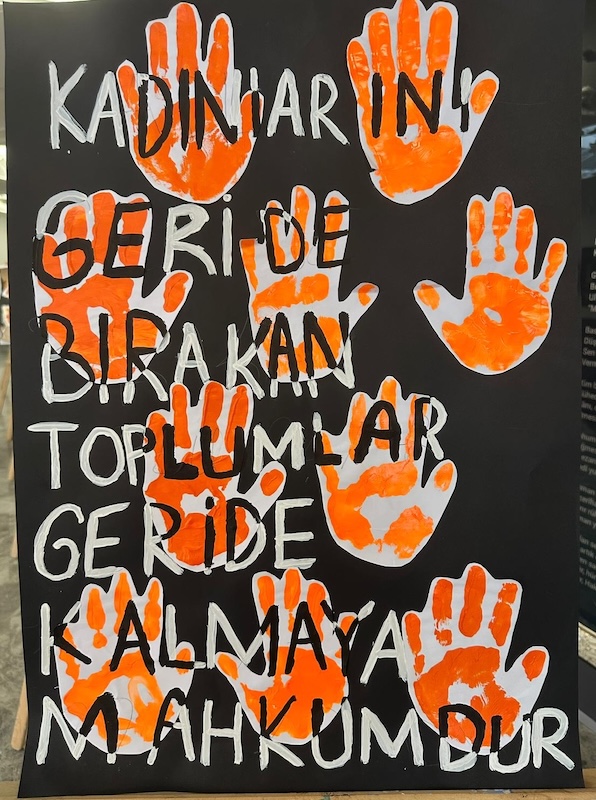 KADINLARINI
GERİDE
BIRAKAN
TOPLUMLAR
GERİDE
KALMAYA
MAHKUMDUR